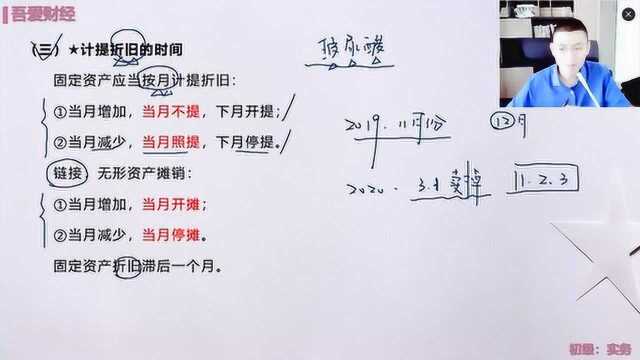 吾爱财经
（三）★计提折旧的时间
固定资产应当按月计提折旧：
①当月增加，当月不提，下月开提；
②当月减少，当月照提，下月停提。
链接：无形资产摊销：
①当月增加，当月开摊；
②当月减少，当月停摊。
固定资产折旧滞后一个月。
玻尿酸
2019.11月份 12月
2020. 3.1 卖掉 1.2.3
初级：实务